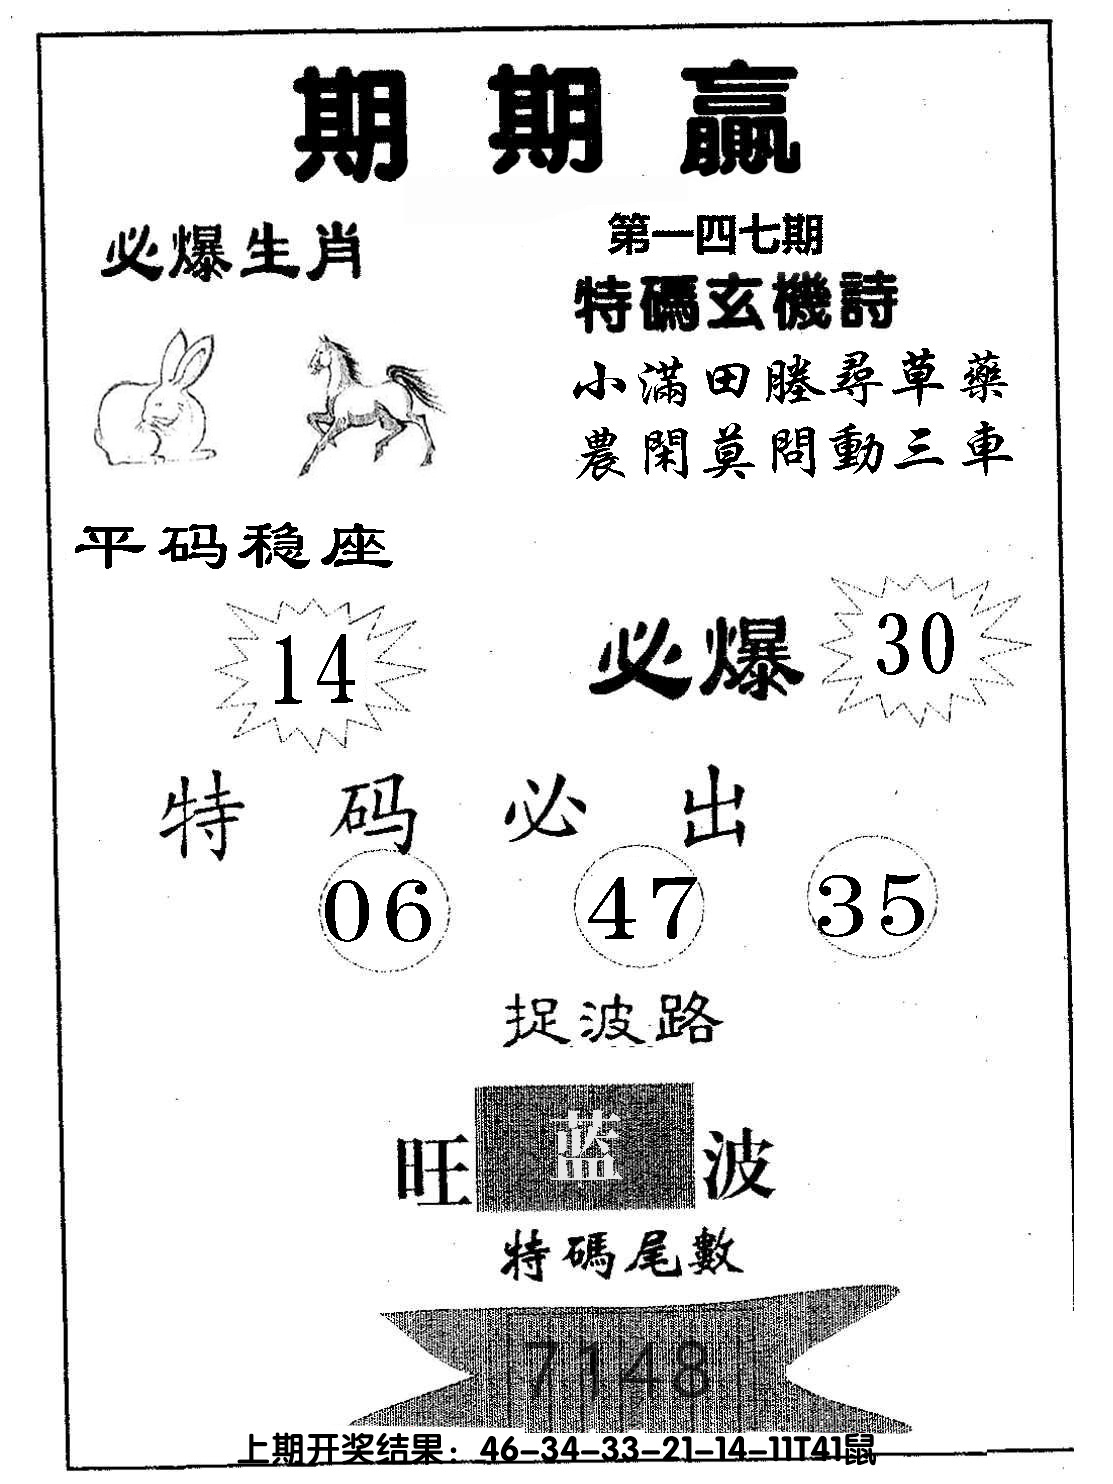 期期赢
必爆生肖
第一四七期
特碼玄機詩
小滿田塍尋草藥
農閑莫問動三車
平码稳座
14
必爆 30
特码必出
06 47 35
捉波路
旺 蓝 波
特碼尾數
7148
上期开奖结果：46-34-33-21-14-11T41鼠